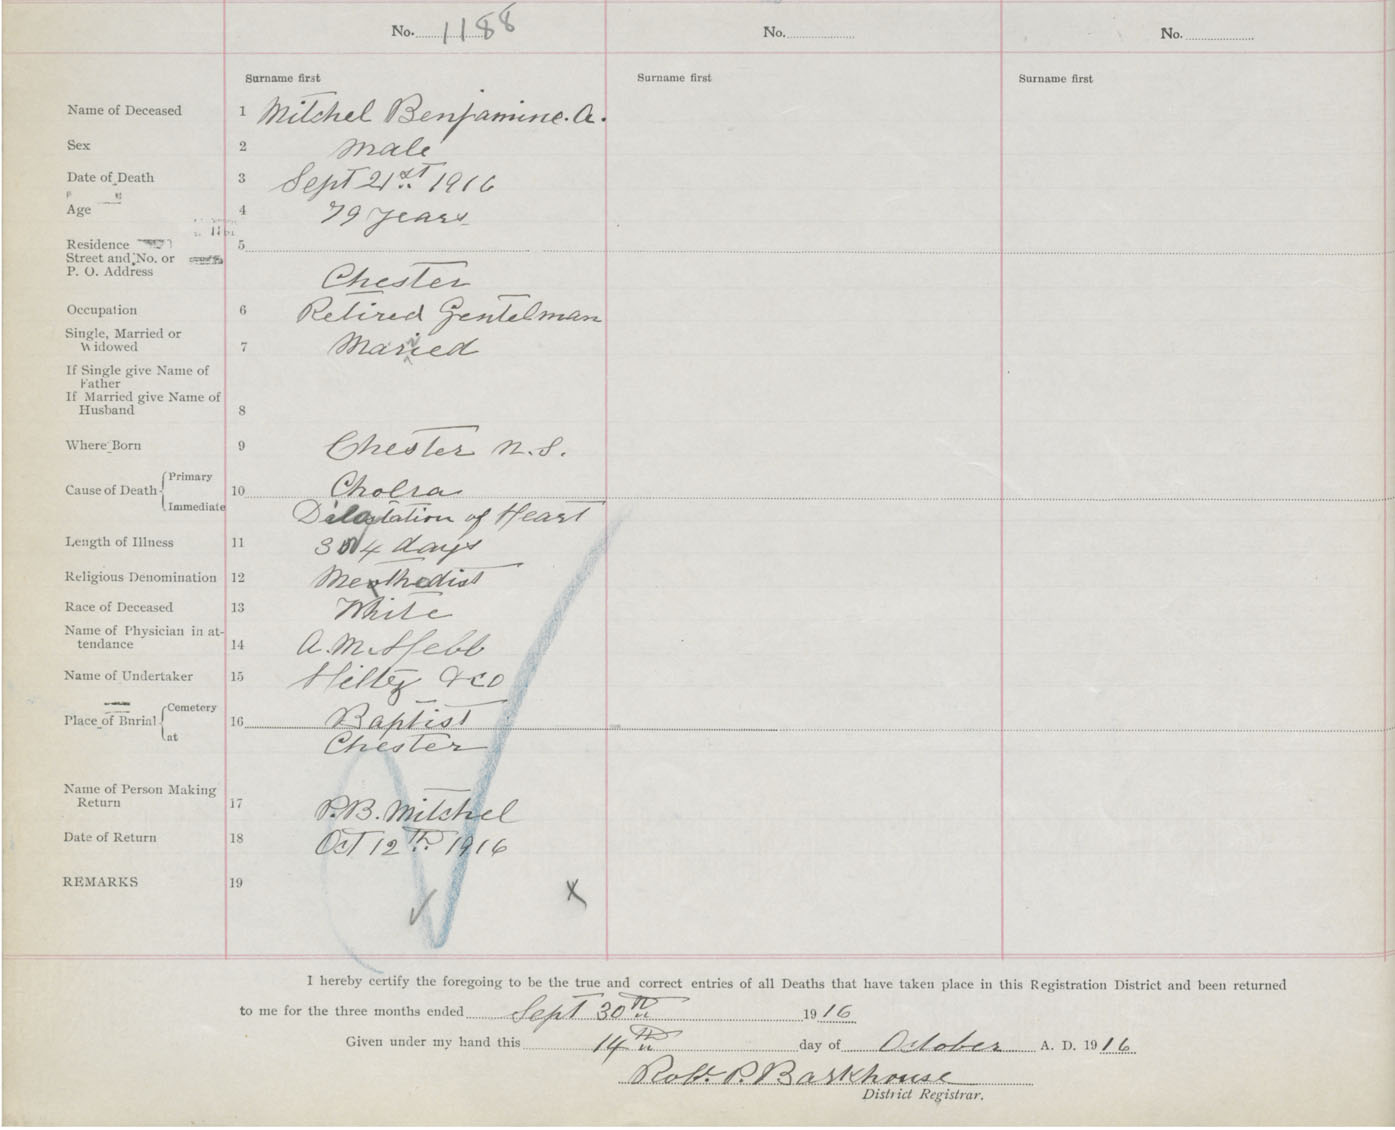 No. 1188 No. No.
Surname first Surname first Surname first
Name of Deceased 1 Mitchel Benjamine. A.
Sex 2 Male
Date of Death 3 Sept 21st 1916
Age 4 79 years
Residence 5
Street and No. or
P. O. Address Chester
Occupation 6 Retired Gentelman
Single, Married or
Widowed 7 Married
If Single give Name of
Father
If Married give Name of
Husband 8
Where Born 9 Chester N.S.
Cause of Death Primary 10 Cholra
Immediate of Heart
Length of Illness 11 3 or 4 days
Religious Denomination 12 Methodist
Race of Deceased 13 White
Name of Physician in at-
tendance 14 A. M. Hebb
Name of Undertaker 15 Hiltz & Co
Place of Burial Cemetery 16 Baptist
at Chester
Name of Person Making
Return 17 P. B. Mitchel
Date of Return 18 Oct 12TH 1916
REMARKS 19
I hereby certify the foregoing to be the true and correct entries of all Deaths that have taken place in this Registration District and been returned
to me for the three months ended Sept 30TH 1916
Given under my hand this 14TH day of October A. D. 1916
Robt. P. Barkhouse
District Registrar.